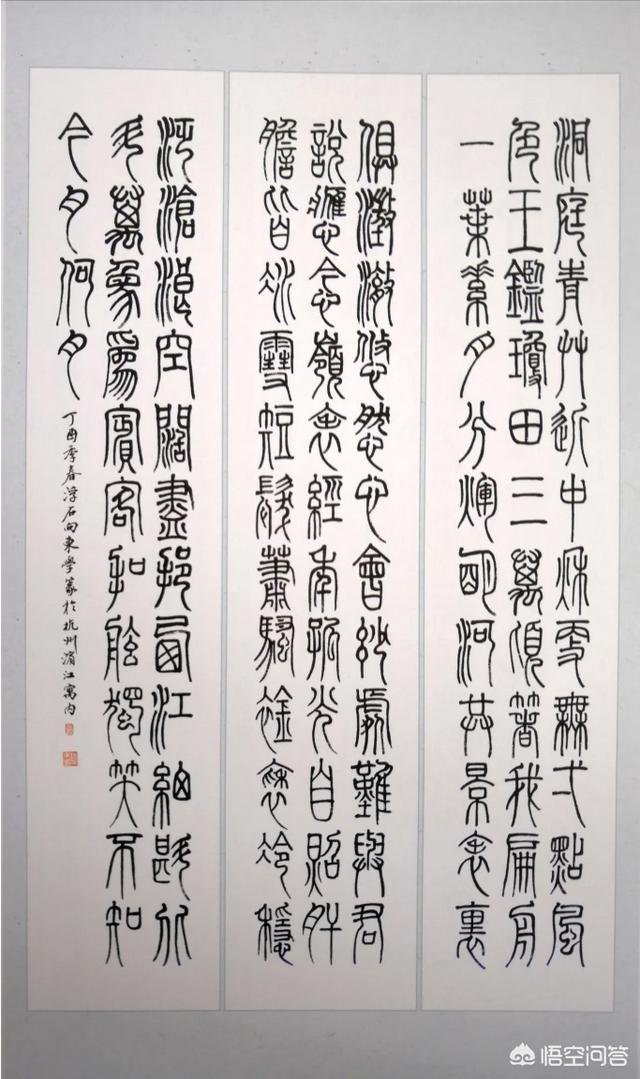 洞庭青艸近中秌更無弌點風
色玉鑑瓊田三萬頃箸我扁舟
一葉素月分輝明河共景表裏
俱澂澂悠然心會妙處難與君
說應念嶺表經年孤光自照肝
膽皆冰雪短髮蕭騷襟袖冷穩
泛滄浪空闊盡挹西江細斟北
斗萬象為賓客扣舷獨笑不知
今夕何夕
丁酉季春浮石向東学篆於杭州濱江寓内
悟空问答